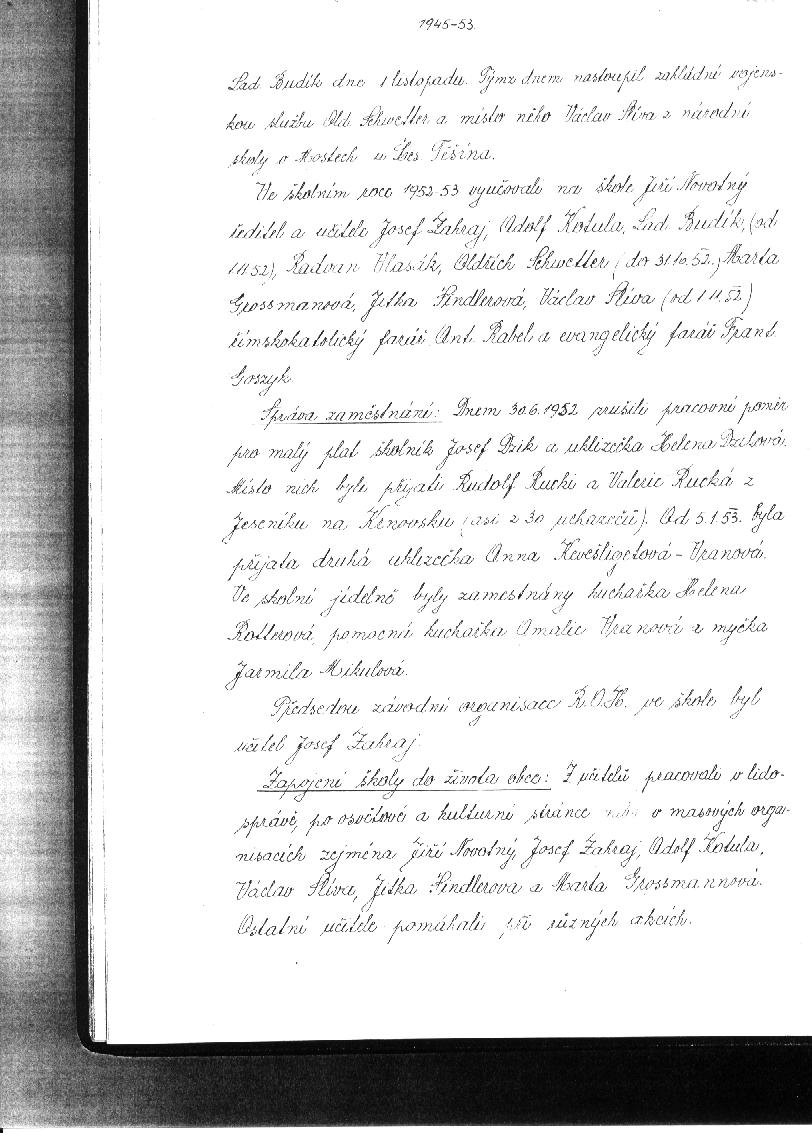 1945-53.
Lad. Budík dne 1 listopadu. Týmž dnem nastoupil základní vojens-
kou službu Old. Schwetter a místo něho Václav Slíva z národní
školy v Mostech u Čes Těšína.
Ve školním roce 1952-53 vyučovali na škole Jiří Novotný
ředitel a učitelé Josef Zahraj, Adolf Kotula, Lad. Budík, (od
1 11 52), Radvan Vlasák, Oldřich Schwetter (do 31. 10. 52.) Marta
Grossmanová, Jitka Šindlerová, Václav Slíva (od 1 11. 52)
římskokatolický farář Ant. Rabel a evangelický farář Frant.
Goszyk
Správa zaměstnání: Dnem 30. 6. 1952 zrušili pracovní poměr
pro malý plat školník Josef Dzik a uklizečka Helena Dziková.
Místo nich byli přijati Rudolf Rucki a Valerie Rucká z
Jeseníku na Krnovsku (asi z 30 uchazečů). Od 5. 1. 53. byla
přijata druhá uklizečka Anna Kevešligetová - Vranová.
Ve školní jídelně byly zaměstnány kuchařka Helena
Rotterová, pomocná kuchařka Amalie Vranová a myčka
Jarmila Mikulová.
Předsedou závodní organisace R.O.H. ve škole byl
učitel Josef Zahraj.
Zapojení školy do života obce: Z učitelů pracovali v lido-
správě, po osvětové a kulturní stránce v masových orga-
nisacích zejména Jiří Novotný, Josef Zahraj, Adolf Kotula,
Václav Slíva, Jitka Šindlerova a Marta Grossmannová.
Ostatní učitelé pomáhali při různých akcích.